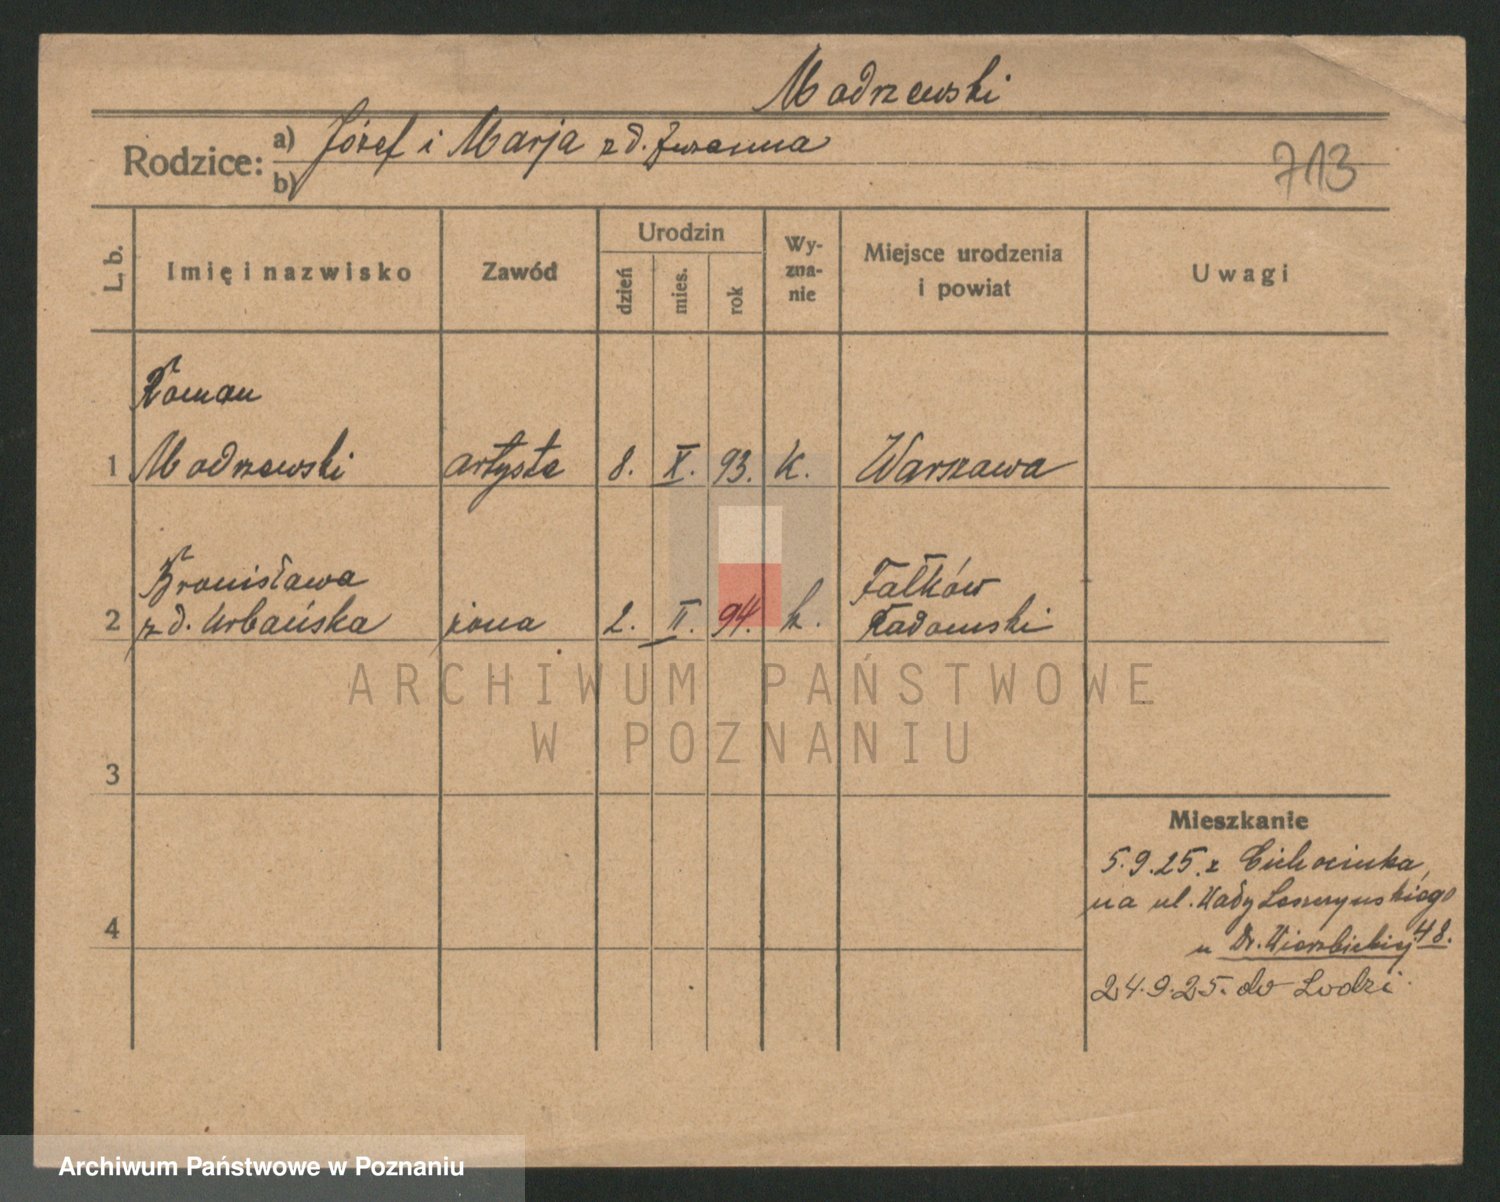 Modrzewski
Rodzice:
a) Józef i Marja z d.
b)
713
L. b.
Imię i nazwisko
Zawód
Urodzin
dzień
mies.
rok
Wy-
zna-
nie
Miejsce urodzenia
i powiat
Uwagi
Roman
1 Modrzewski artysta 8. X. 93. k. Warszawa
Bronisława Fałków
2 z d. Urbańska żona 2. II. 94. k. Radomski
3
4
Mieszkanie
5.9.25. z Ciechocinka,
na ul. Wały
u Dr. 48.
24.9.25. do Lodzi.
ARCHIWUM PAŃSTWOWE
W POZNANIU
Archiwum Państwowe w Poznaniu